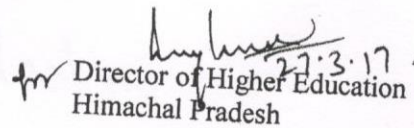 27.3.17
for Director of Higher Education
Himachal Pradesh